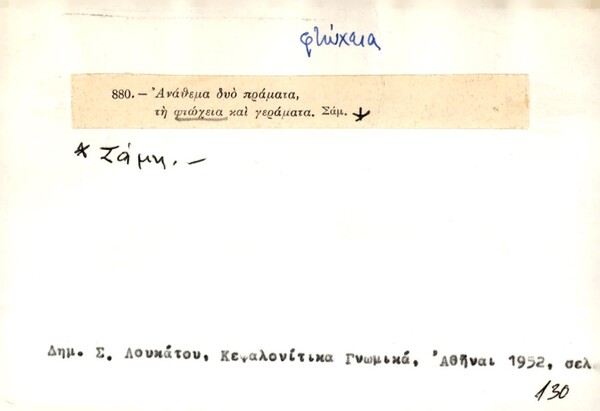 φτώχεια
880. — Ἀνάθεμα δυὸ πράματα,
τὴ φτώχεια καὶ γεράματα. Σάμ. *
* Σάμη. —
Δημ. Σ. Λουκάτου, Κεφαλονίτικα Γνωμικά, Ἀθῆναι 1952, σελ.
130